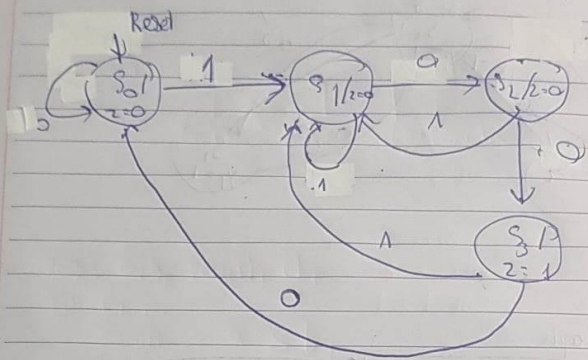 Reset
S0/
z=0
1
S1/z=0
0
S2/z=0
1
1
0
S3/
z=1
1
0